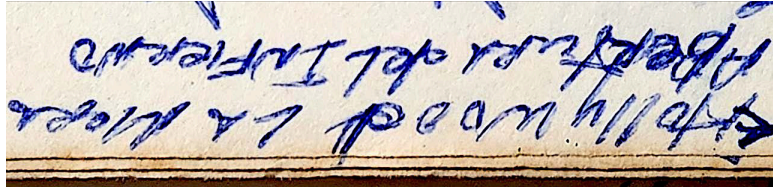 Hollywood LA
ABERTURA del INFIERNO